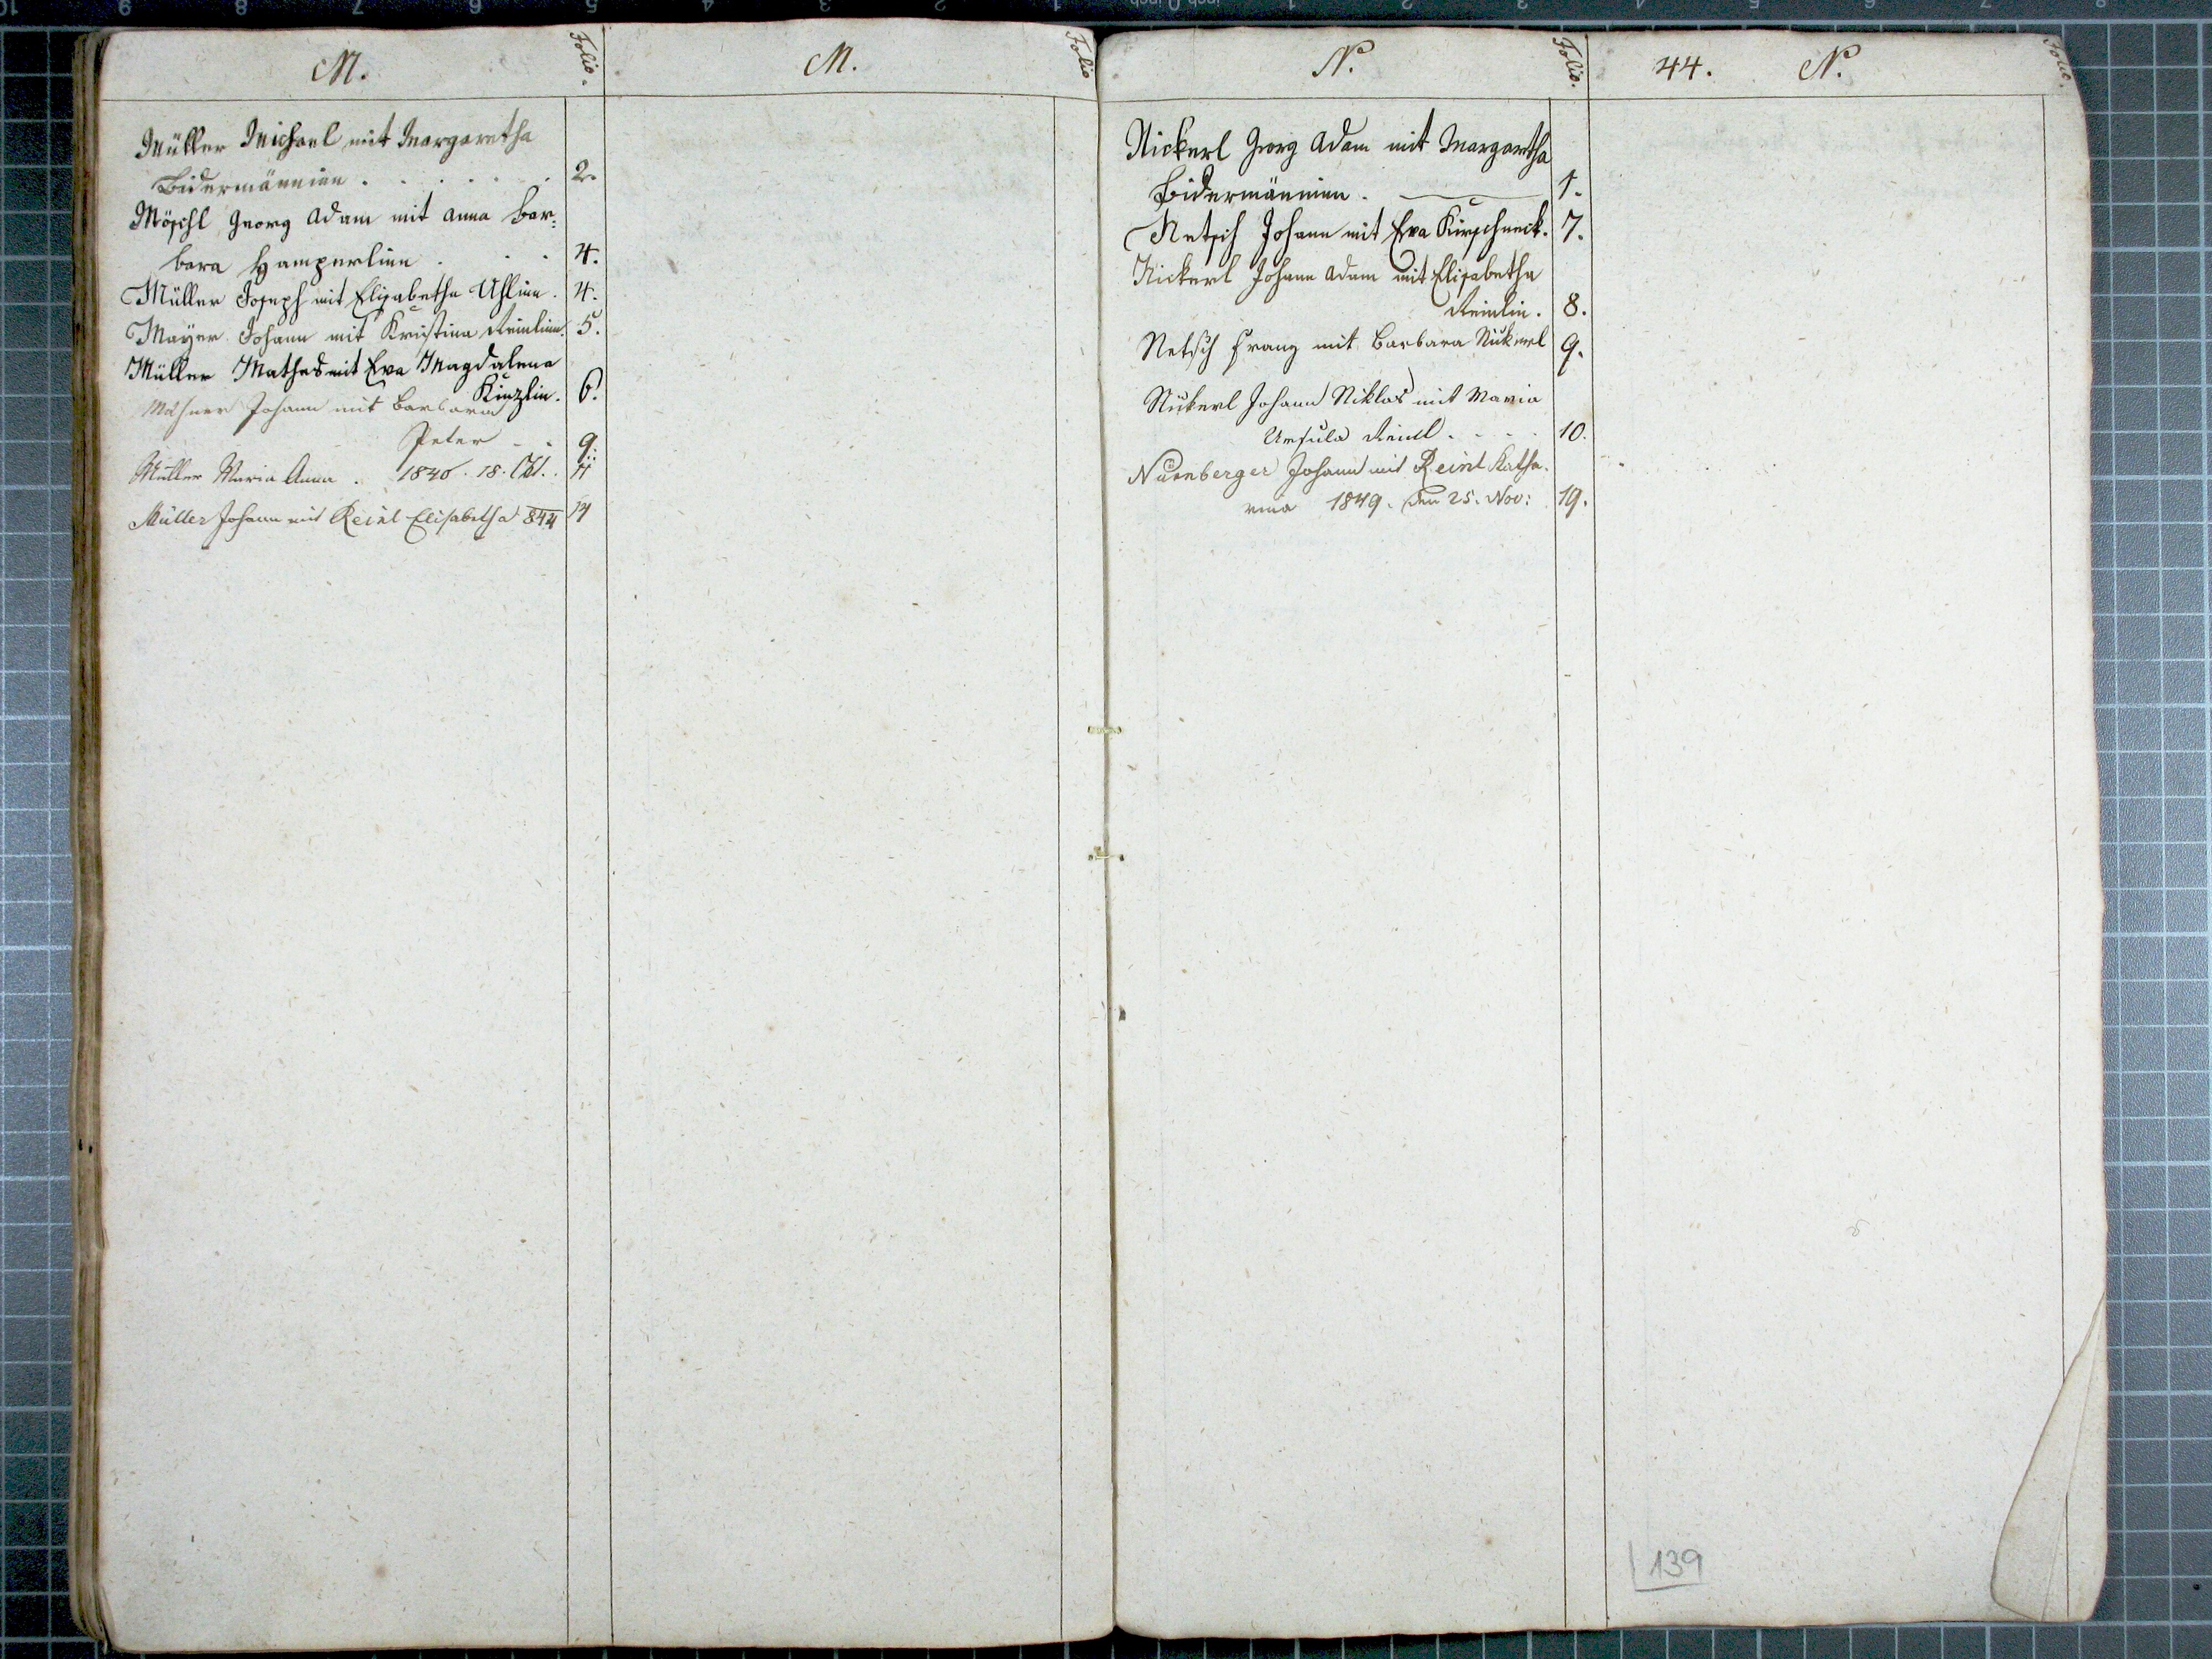 M.
Folio.
Müller Michael mit Margaretha
Bidermännien . . . . . . 2.
Möschl Georg Adam mit Anna Bar:
bara Hamperlinn . . . 4.
Müller Joseph mit Elisabetha Uhlinn. 4.
Mayer Johann mit Kristina Reinlinn. 5.
Müller Mathes mit Eva Magdalena
Künzlin. 6.
Johann mit Barbara
Peter . . 9.
Müller Maria Anna . 1840. 18.
Müller Johann mit Reinl Elisabetha 844 14
M.
Folio
N.
Folio.
Nickerl Georg Adam mit Margaretha
Bidermännien . 1.
Netsch Johann mit Eva Kirschneck. 7.
Nickerl Johann Adam mit Elisabetha
Reinlin. 8.
Netsch Franz mit Barbara Nickerl 9.
Nickerl Johann Niklas mit Maria
Ursula Reinl . . . . 10.
Nürnberger Johann mit Reinl Katha.
rina 1849. den 25. Nov: 19.
44. N.
Folio.
139